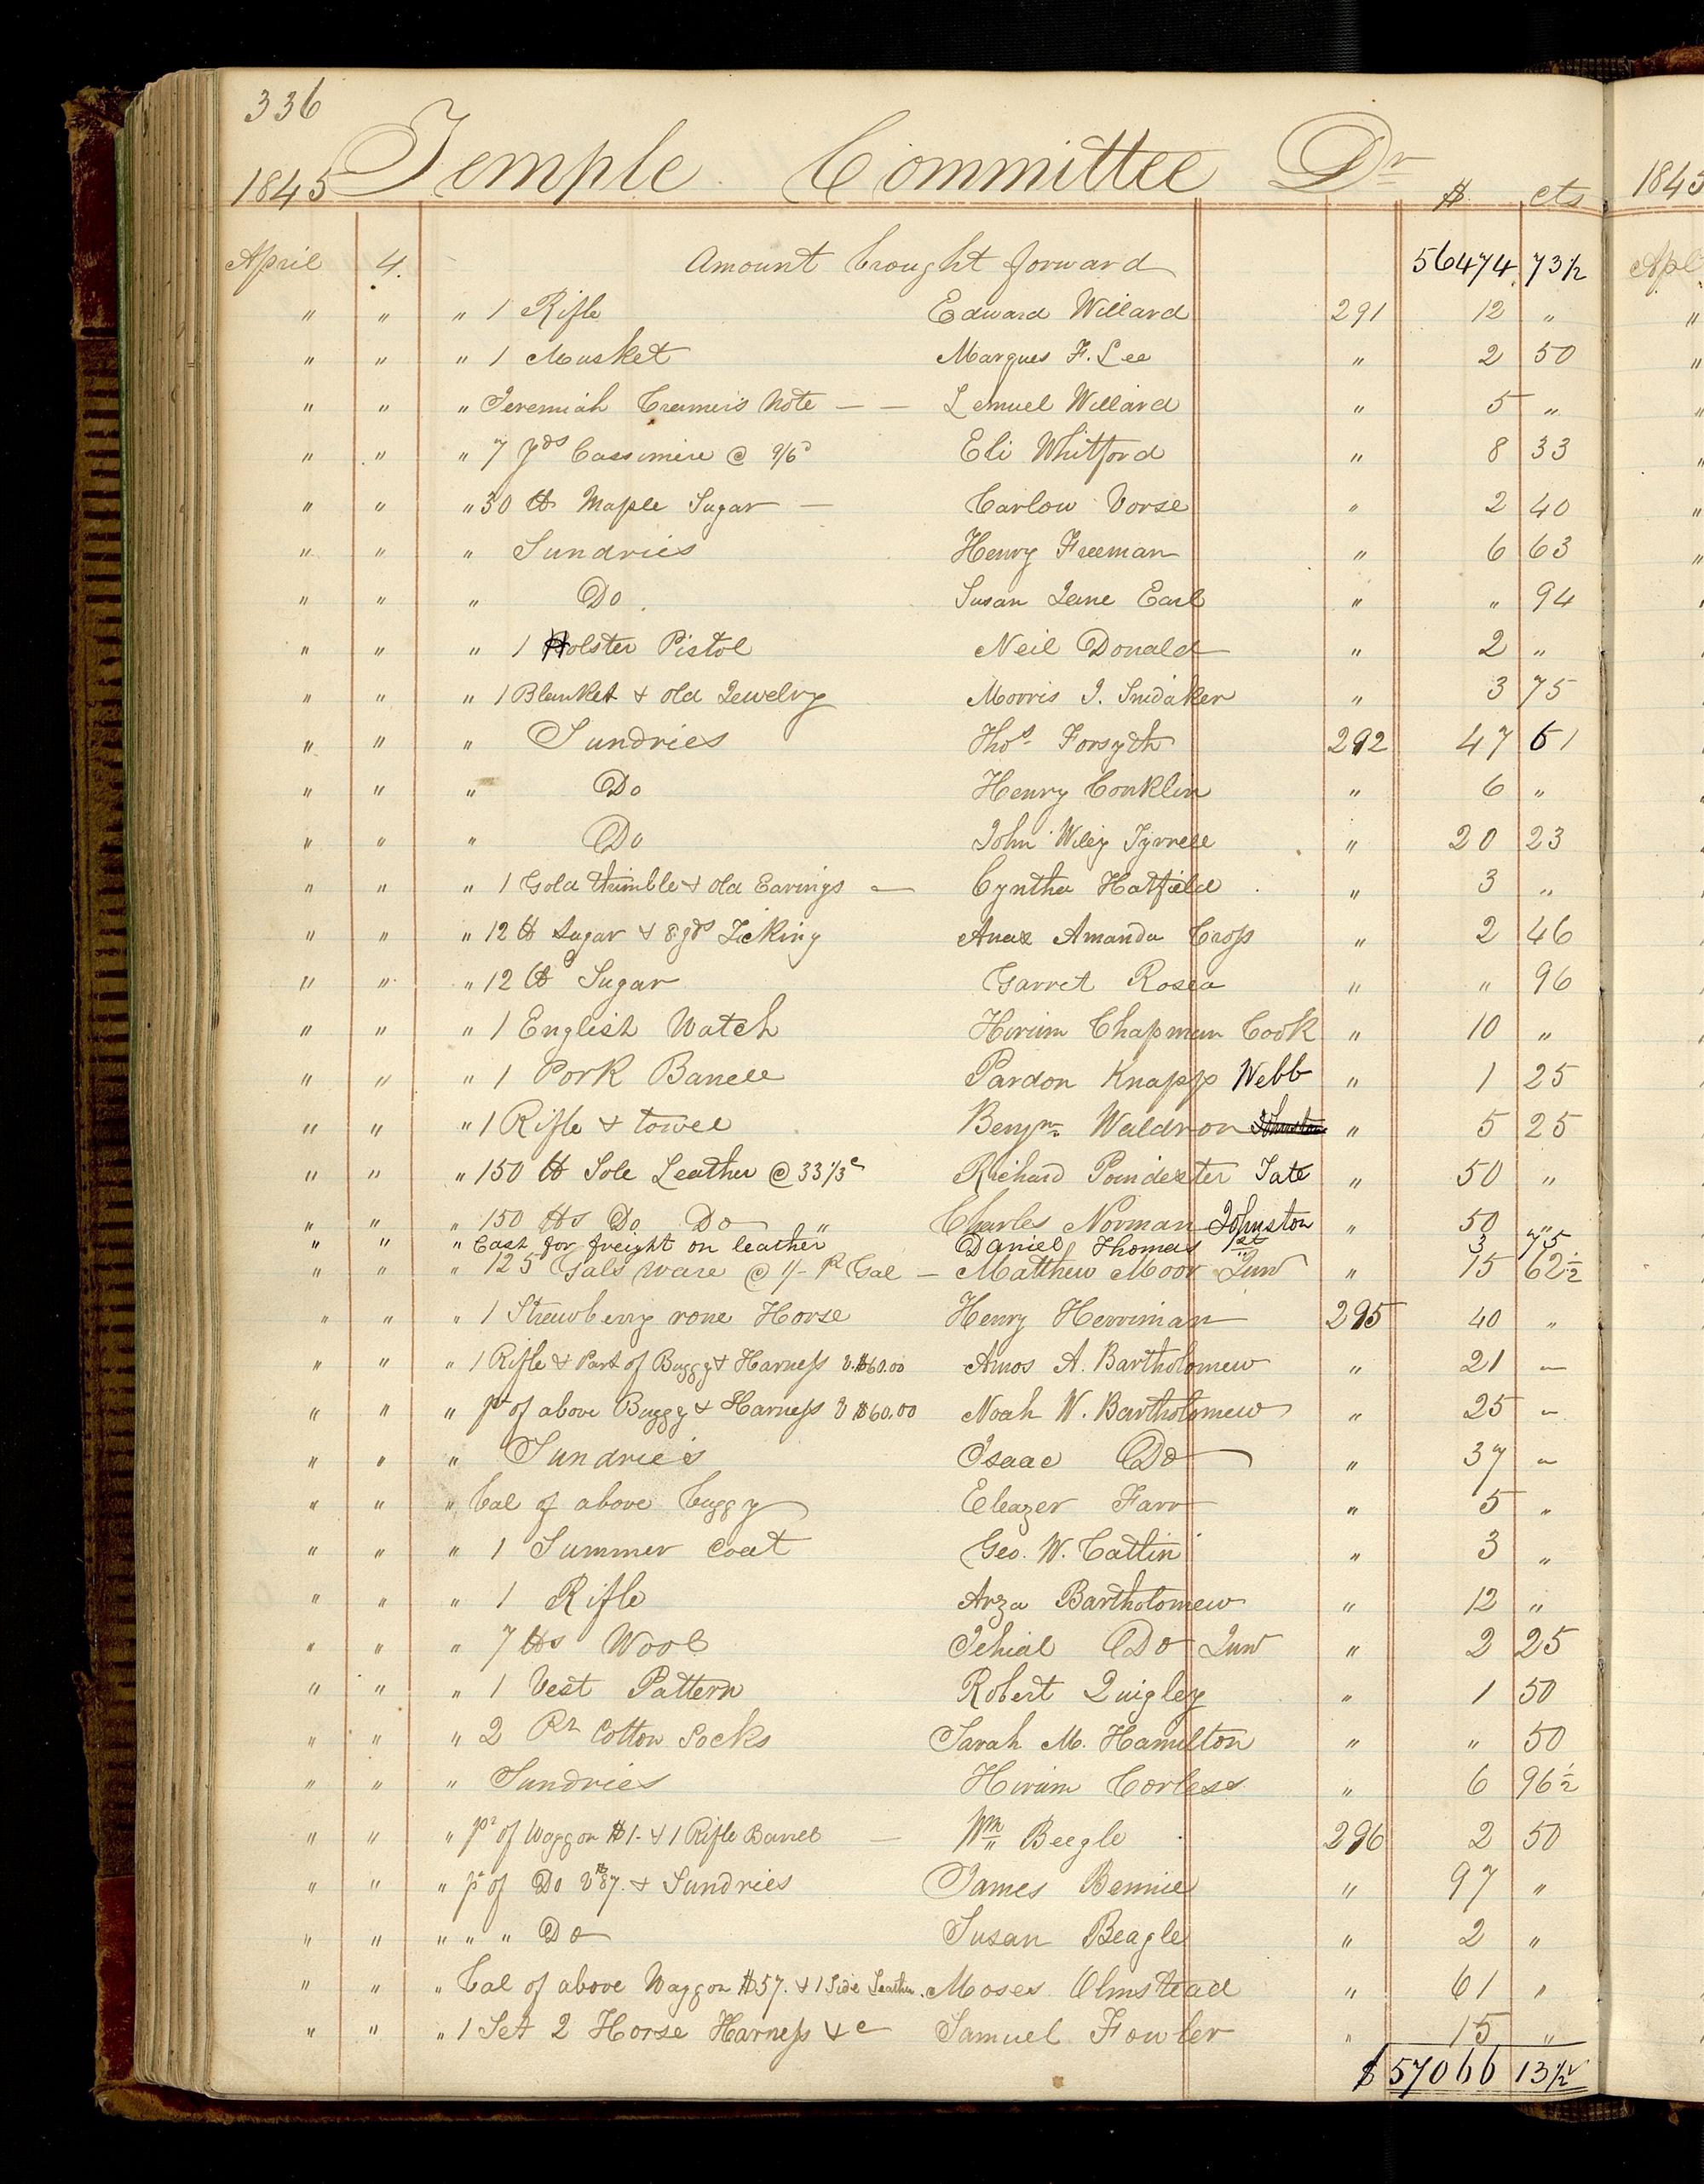 336
1845 Temple Committee Dr $ cts 1845
April 4. Amount brought forward 56474 73½ Apl
" " " 1 Rifle Edward Willard 291 12 "
" " " 1 Musket Marques F. Lee " 2 50
" " " Jeremiah Creamers Note — — Lemuel Willard " 5 "
" " " 7 yds Cassimere @ Eli Whitford " 8 33
" " " 30 lb Maple Sugar — Carlow Vorse " 2 40
" " " Sundries Henry Freeman " 6 63
" " " Do Susan Jane Earl " " 94
" " " 1 Holster Pistol Neil Donald " 2 "
" " " 1 Blanket & old Jewelry Morris J. Snidaker " 3 75
" " " Sundries Thos Forsyth 292 47 61
" " " Do Henry Conklin " 6 "
" " " Do John Wiley Tyrrell " 20 23
" " " 1 Gold thimble & old Earings — Cyntha Hatfield " 3 "
" " " 12 lb Sugar & 8 yds Ticking Amanda Cross " 2 46
" " " 12 lb Sugar Garret Rosea " " 96
" " " 1 English Watch Hirum Chapman Cook " 10 "
" " " 1 Pork Barrell Pardon Knapp Webb " 1 25
" " " 1 Rifle & towel Benjn Waldron " 5 25
" " " 150 lb Sole Leather @ 33⅓c Richard Poindexter Tate " 50 "
" " " 150 lbs Do Do " Charles Norman Johnston " 50 "
" " " Cash for freight on leather Daniel Thomas 1st 3 75
" " " 125 Gals ware @ 1/- Pr Gal — Matthew Moor Junr " 15 62½
" " " 1 Strawberry rone Horse Henry Herriman 295 40 "
" " " 1 Rifle & Part of Buggy & Harness v. $60.00 Amos A. Bartholomew " 21 —
" " " pt of above Buggy & Harness v $60.00 Noah W. Bartholomew " 25 —
" " " Sundries Isaac Do " 37 —
" " " bal of above buggy Eleazer Farr " 5 "
" " " 1 Summer coat Geo. W. Catlin " 3 "
" " " 1 Rifle Arza Bartholomew " 12 "
" " " 7 lbs Wool Jehial Do Junr " 2 25
" " " 1 Vest Pattern Robert Quigley " 1 50
" " " 2 Pr Cotton Socks Sarah M. Hamilton " " 50
" " " Sundries Hirum Corless " 6 96½
" " " pt of Waggon $1. & 1 Rifle Barrel — Wm Beegle 296 2 50
" " " pt of Do v $87. & Sundries James Bennie " 97 "
" " " " " Do Susan Beagle " 2 "
" " " bal of above Waggon $57. & 1 Side Leather. Moses Olmstead " 61 "
" " " 1 Set 2 Horse Harness &c Samuel Fowler " 15 "
$ 57066 13½